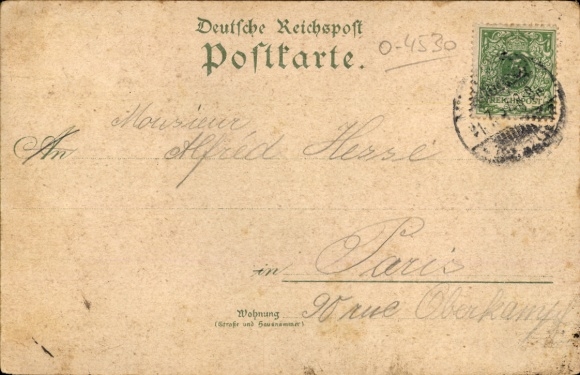 Deutsche Reichspost
Postkarte.
0-4530
REICHSPOST
Monsieur
An Alfréd Hesse
in Paris
Wohnung
(Straße und Hausnummer)
90 rue Oberkampf